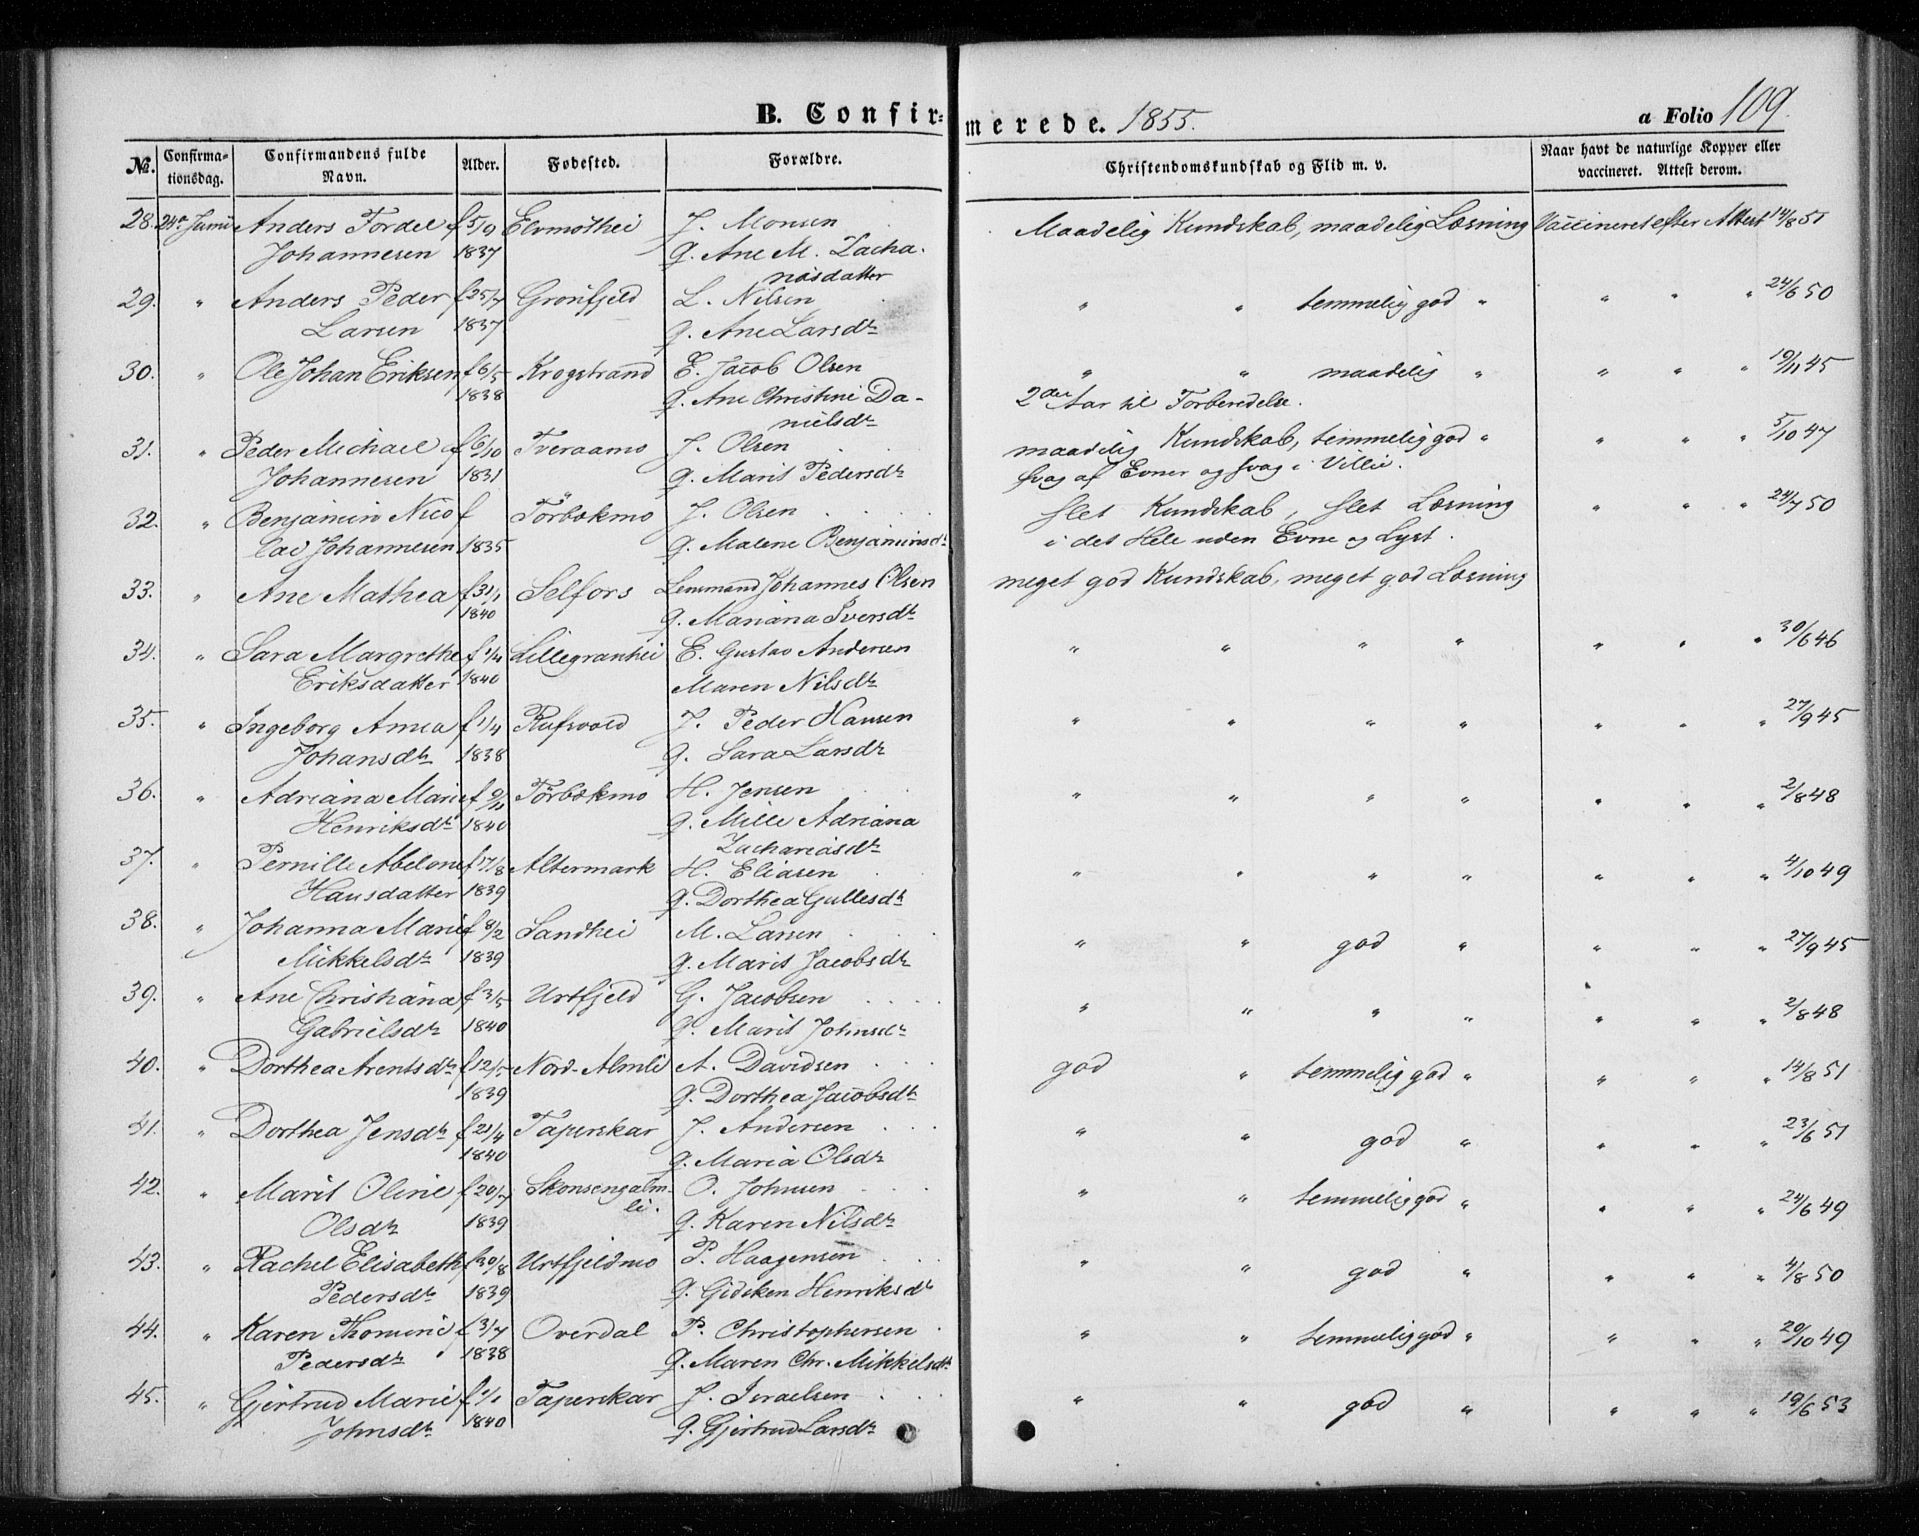 B. Confirmerede. 1855.
a Folio 109.
No. Confirmationsdag. Confirmandens fulde Navn. Alder. Fødested. Forældre. Christendomskundskab og Flid m. v. Naar havt de naturlige Kopper eller vaccineret. Attest derom.
28. 24de Juni Anders Fordel f 5/9 Elvmothei J. Monsen Maadelig Kundskab, maadelig Læsning Vaccineret efter Attest 14/8 51
Johannesen 1837 g. Ane M. Zacha-
riasdatter
29. " Anders Peder f 25/7 Grønfjeld L. Nilsen " " temmelig god " " " " 24/6 50
Larsen 1837 g. Ane Larsdtr
30. " Ole Johan Eriksen f 6/5 Krogstrand E. Jacob Olsen " " maadelig " " " " 19/11 45
1838 g. Ane Christine Da- 2det Aar til Forberedelse.
nielsdtr
31. " Peder Michael f 6/10 Tveraamo J. Olsen maadelig Kundskab, temmelig god " " " " 5/10 47
Johannesen 1831 g. Marit Pedersdtr Svag af Evner og svag i Villie.
32. " Benjamin Nico f Törbækmo J. Olsen Slet Kundskab, slet Læsning " " " 24/7 50
lai Johannesen 1835 g. Malene Benjaminsdtr i det Hele uden Evne og Lyst.
33. " Ane Mathea f 31/1 Selfors Lensmand Johannes Olsen meget god Kundskab, meget god Læsning
1840 g. Mariana Iversdtr
34. " Sara Margrethe f 1/4 Lillegranhei E. Gustav Andersen " " " " " " " 30/6 46
Eriksdatter 1840 Maren Nilsdtr
35. " Ingeborg Anna f 1/4 Rufsvold J. Peder Hansen " " " " " " " 27/9 45
Johansdtr 1838 g. Sara Larsdtr
36. " Adriana Marie f 9/11 Törbækmo H. Jensen " " " " " " " 2/8 48
Henriksdtr 1840 g. Mille Adriana
Zachariasdtr
37. " Pernille Abelone f 17/8 Altermark H. Eliasen " " " " " " " 4/10 49
Hansdatter 1839 g. Dorthea Gullesdtr
38. " Johanna Marie f 8/2 Sandhei M. Larsen " " god " " " " 27/9 45
Mikkelsdtr 1839 g. Marit Jacobsdtr
39. " Ane Christiana f 3/5 Urtfjeld G. Jacobsen " " " " " " " 2/8 48
Gabrielsdtr 1840 g. Marit Johnsdtr
40. " Dorthea Arentsdtr f 12/5 Nord-Almli A. Davidsen god " temmelig god " " " " 14/8 51
1839 g. Dorthea Jacobsdtr
41. " Dorthea Jensdtr f 21/4 Taperskar J. Andersen " " god " " " " 23/6 51
1840 g. Maria Olsdtr
42. " Marit Oline f 20/7 Skonsengalm- O. Johnsen " " temmelig god " " " " 24/6 49
li.
Olsdtr 1839 g. Karen Nilsdtr
43. " Rachel Elisabeth f 30/8 Urtfjeldmo P. Haagensen " " god " " " " 4/8 50
Pedersdtr 1839 g. Gidsken Henriksdtr
44. " Karen Thomine f 3/7 Overdal P. Christophersen " " temmelig god " " " " 20/10 49
Pedersdtr 1838 g. Maren Chr. Mikkelsdtr
45. " Gjertrud Marie f 1/1 Taperskar J. Israelsen " " god " " " " 19/6 53
Johnsdtr 1840 g. Gjertrud Larsdtr